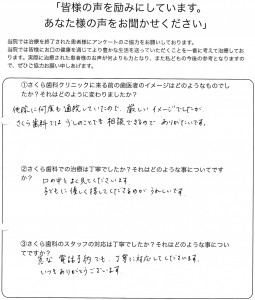 「皆様の声を励みにしています。
あなた様の声をお聞かせください」
当院では治療を終了された患者様にアンケートのご協力をお願いしております。
当院では皆様にお口の健康を通じてより豊かな生活を送っていただくことを一番に考えて治療しております。
実際に治療された患者様のお声が何よりも力となり、また私どもの今後の参考となりますので、ぜひご協力お願い申し上げます。
①さくら歯科クリニックに来る前の歯医者のイメージはどのようなものでしたか？それはどのように変わりましたか？
他院に何度も通院していたので、厳しいイメージでしたが、
さくら歯科ではうしのことでも相談できるので ありがたいです。
②さくら歯科での治療は丁寧でしたか？それはどのような事についてですか？
口の中をよく見てくださいます
子どもに優しく接してくださるのが うれしいです。
③さくら歯科のスタッフの対応は丁寧でしたか？それはどのような事についてですか？
急な電話予約でも、丁寧に対応してくださいます。
いつもありがとうございます。